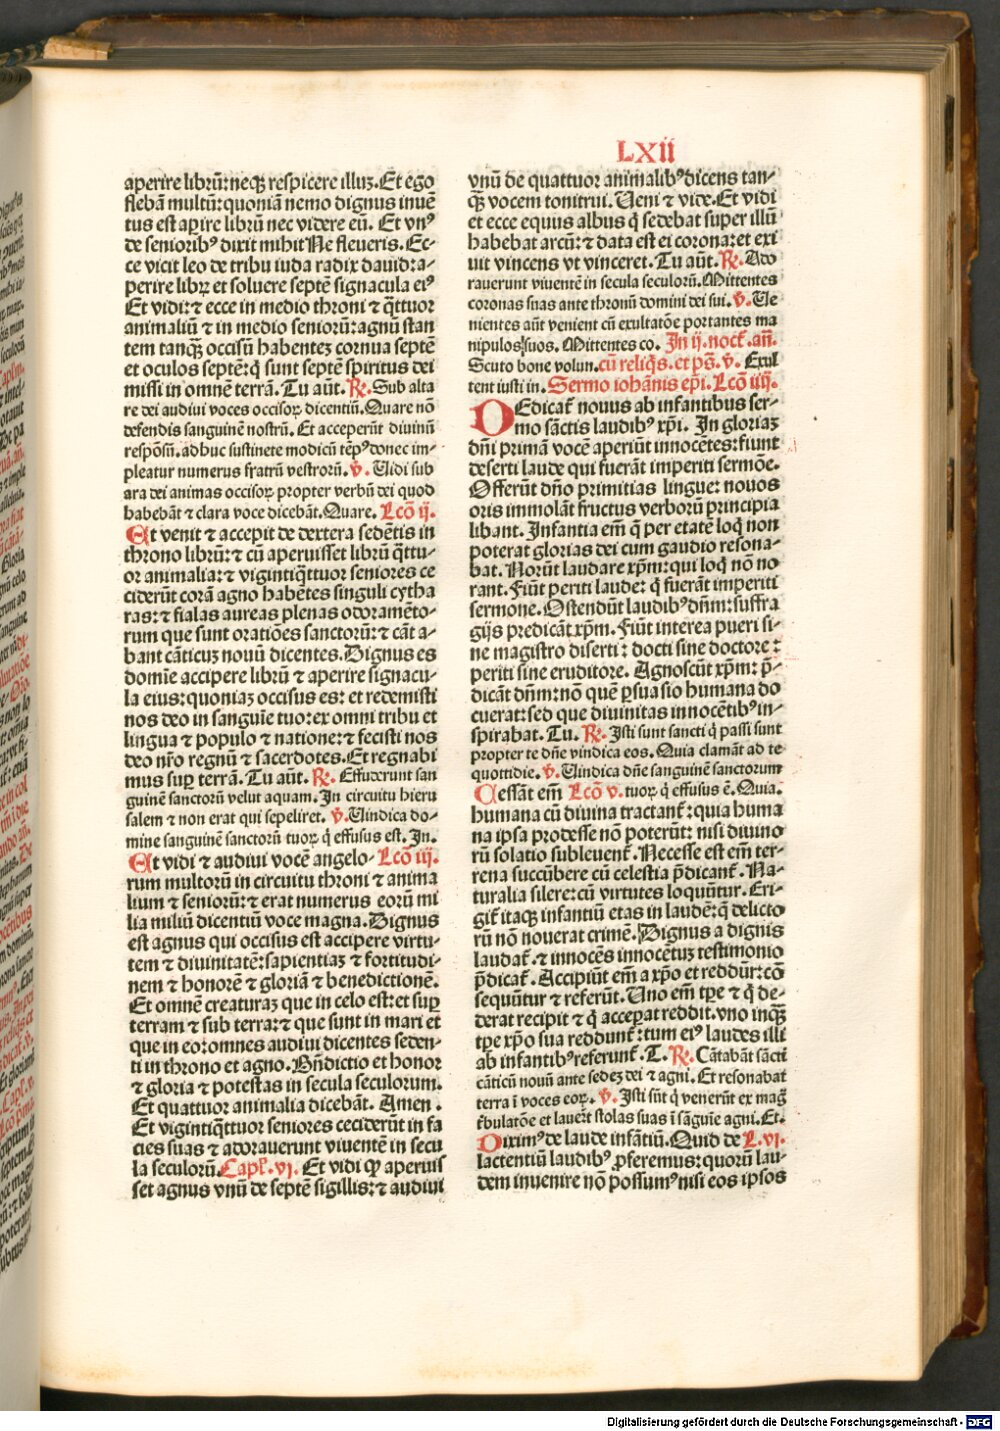 LXII
aperire librū: neqꝫ respicere illuꝫ. Et ego
flebā multū: quoniā nemo dignus inuē
tus est apire librū nec videre eū. Et vnꝰ
de senioribꝰ dixit mihi: Ne fleueris. Ec-
ce vicit leo de tribu iuda radix dauid: a-
perire libꝝ et soluere septē signacula eiꝰ
Et vidi: ⁊ ecce in medio throni ⁊ q̄ttuor
animaliū ⁊ in medio senioꝝ: agnū stan
tem tanqꝫ occisū habentez cornua septē
et oculos septē: q̄ sunt septē spiritus dei
missi in omnē terrā. Tu aūt. ℟. Sub alta
re dei audiui voces occisoꝝ dicentiū. Quare nō
defendis sanguinē nostrū. Et acceperūt diuinū
respōsū. adhuc sustinete modicū tēpꝰ donec im-
pleatur numerus fratrū vestrorū. ℣. Uidi sub
ara dei animas occisoꝝ propter verbū dei quod
habebāt ⁊ clara voce dicebāt. Quare. Lcō ij.
Et venit ⁊ accepit de dextera sedētis in
throno librū: ⁊ cū aperuisset librū q̄ttu-
or animalia: ⁊ vigintiq̄ttuor seniores ce
ciderūt corā agno habētes singuli cytha
ras: ⁊ fialas aureas plenas odoramēto-
rum que sunt oratiōes sanctorū: ⁊ cāt a-
bant cāticuꝫ nouū dicentes. Dignus es
domīe accipere librū ⁊ aperire signacu-
la eius: quoniaꝫ occisus es: et redemisti
nos deo in sanguīe tuo: ex omni tribu et
lingua ⁊ populo ⁊ natione: ⁊ fecisti nos
deo nr̄o regnū ⁊ sacerdotes. Et regnabi
mus suꝑ terrā. Tu aūt. ℟. Effuderunt san
guinē sanctorū velut aquam. In circuitu hieru
salem ⁊ non erat qui sepeliret. ℣. Uindica do-
mine sanguinē sanctorū tuoꝝ q̄ effusus est. In.
Et vidi ⁊ audiui vocē angelo- Lcō iij.
rum multorū in circuitu throni ⁊ anima
lium ⁊ seniorū: ⁊ erat numerus eorū mi
lia miliū dicentiū voce magna. Dignus
est agnus qui occisus est accipere virtu-
tem ⁊ diuinitatē: sapientiaꝫ ⁊ fortitudi-
nem ⁊ honorē ⁊ gloriā ⁊ benedictionē.
Et omnē creaturaꝫ que in celo est: et suꝑ
terram ⁊ sub terra: ⁊ que sunt in mari et
que in eo: omnes audiui dicentes seden-
ti in throno et agno. Bn̄dictio et honor
⁊ gloria ⁊ potestas in secula seculorum.
Et quattuor animalia dicebāt. Amen.
Et vigintiq̄ttuor seniores ceciderūt in fa
cies suas ⁊ adorauerunt viuentē in secu
la seculorū. Capľ. vi. Et vidi ꝙ aperuis
set agnus vnū de septē sigillis: ⁊ audiui
vnū de quattuor animalibꝰ dicens tan-
qꝫ vocem tonitrui. Ueni ⁊ vide. Et vidi
et ecce equus albus q̄ sedebat super illū
habebat arcū: ⁊ data est ei corona: et exi
uit vincens vt vinceret. Tu aūt. ℟. Ado
rauerunt viuentē in secula seculorū. Mittentes
coronas suas ante thronū domini dei sui. ℣. Ue
nientes aūt venient cū exultatōe portantes ma
nipulos suos. Mittentes co. In ij. noct̄. an̄.
Scuto bone volun. cū reliq̄s. et ps̄. ℣. Exul
tent iusti in. Sermo iohānis ep̄i. Lcō iiij.
DEdicat̄ nouus ab infantibus ser-
mo sāctis laudibꝰ xp̄i. In gloriaꝫ
dn̄i primā vocē aperiūt innocētes: fiunt
deserti laude qui fuerāt imperiti sermōe.
Offerūt dn̄o primitias lingue: nouos
oris immolāt fructus verborū principia
libant. Infantia em̄ q̄ per etatē loq̄ non
poterat glorias dei cum gaudio resona-
bat. Norūt laudare xp̄m: qui loq̄ nō no
rant. Fiūt periti laude: q̄ fuerāt imperiti
sermone. Ostendūt laudibꝰ dn̄m: suffra
gijs predicāt xp̄m. Fiūt interea pueri si-
ne magistro diserti: docti sine doctore:
periti sine eruditore. Agnoscūt xp̄m: p̄-
dicāt dn̄m: nō quē ꝑsuasio humana do
cuerat: sed que diuinitas innocētibꝰ in-
spirabat. Tu. ℟. Isti sunt sancti q̄ passi sunt
propter te dn̄e vindica eos. Quia clamāt ad te
quottidie. ℣. Uindica dn̄e sanguinē sanctorum
Cessāt em̄ Lcō v. tuoꝝ q̄ effusus ē. Quia.
humana cū diuina tractant̄: quia huma
na ipsa prodesse nō poterūt: nisi diuino
rū solatio subleuent̄. Necesse est em̄ ter-
rena succūbere cū celestia p̄dicant̄. Na-
turalia silere: cū virtutes loquūtur. Eri-
git̄ itaqꝫ infantiū etas in laudē: q̄ delicto
rū nō nouerat crimē. Dignus a dignis
laudat̄. ⁊ innocēs innocētuꝫ testimonio
p̄dicat̄. Accipiūt em̄ a xp̄o et reddūt: cō
sequūtur ⁊ referūt. Uno em̄ tp̄e ⁊ q̄ de-
derat recipit ⁊ q̄ acceꝑat reddit. vno inqꝫ
tp̄e xp̄o sua reddunt̄: tum eiꝰ laudes illi
ab infantibꝰ referunt̄. T. ℟. Cātabāt sācti
cāticū nouū ante sedeꝫ dei ⁊ agni. Et resonabat
terra ī voces eoꝝ. ℣. Isti sūt q̄ venerūt ex maḡ
t̄bulatōe et lauer̄t stolas suas ī sāguīe agni. Et.
Diximꝰ de laude infātiū. Quid de L. vi.
lactentiū laudibꝰ ꝓferemus: quorū lau-
dem inuenire nō possumꝰ nisi eos ipsos
Digitalisierung gefördert durch die Deutsche Forschungsgemeinschaft - DFG